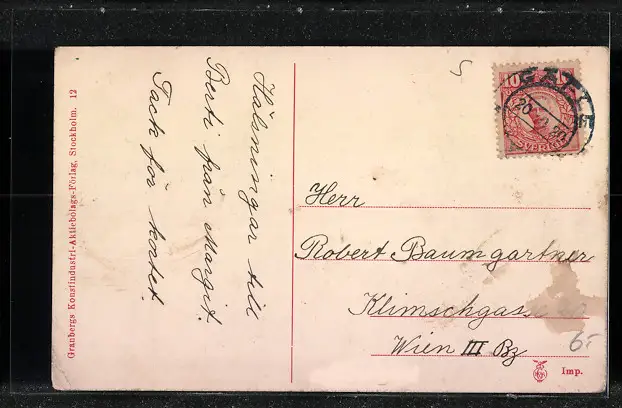 Hälsningar till
Berti från Margit.
Tack för kortet.
Granbergs Konstindustri-Aktiebolags-Förlag, Stockholm. 12
10
SVERIGE
20
Herr
Robert Baumgartner
Klimschgasse
Wien III Bz
6:-
Imp.